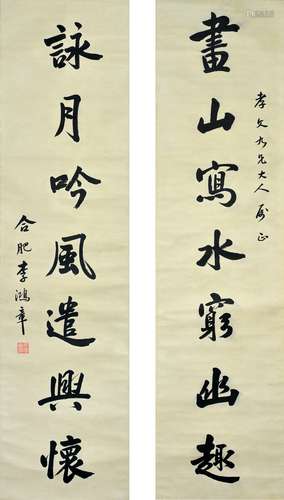 畫山寫水窮幽趣
孝文九兄大人屬正
詠月吟風遣興懷
合肥李鴻章